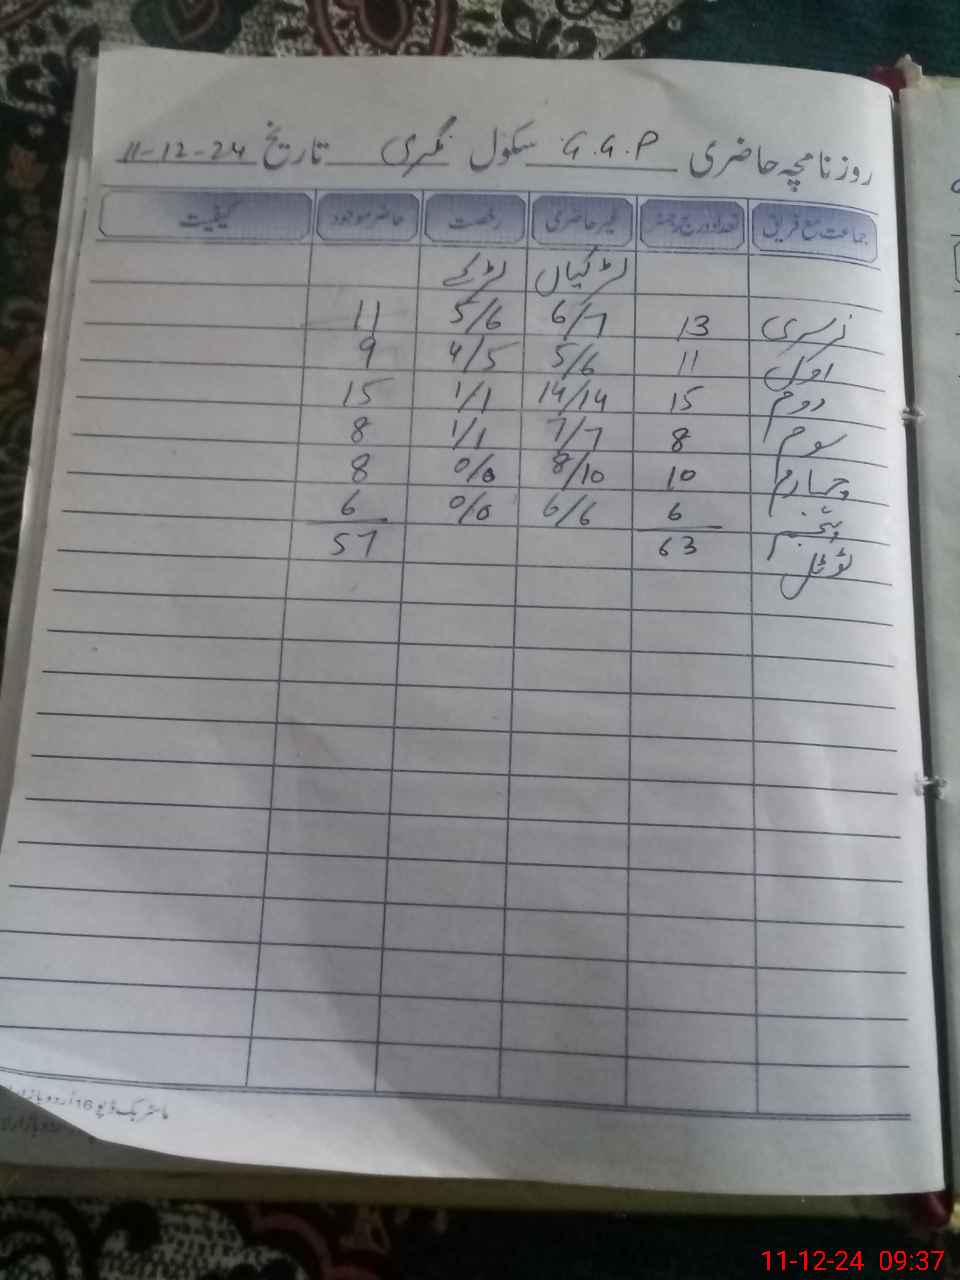 روزنامچہ حاضری G.G.P سکول نگری تاریخ 11-12-24
جماعت مع فریق تعداد درج رجسٹر غیر حاضری رخصت حاضر موجود کیفیت
لڑکیاں لڑکے
نرسری 13 6/7 5/6 11
اول 11 5/6 4/5 9
دوم 15 14/14 1/1 15
سوم 8 7/7 1/1 8
چہارم 10 8/10 0/0 8
پنجم 6 6/6 0/0 6
ٹوٹل 63 57
ماسٹر بک ڈپو 16 اردو بازار
11-12-24 09:37